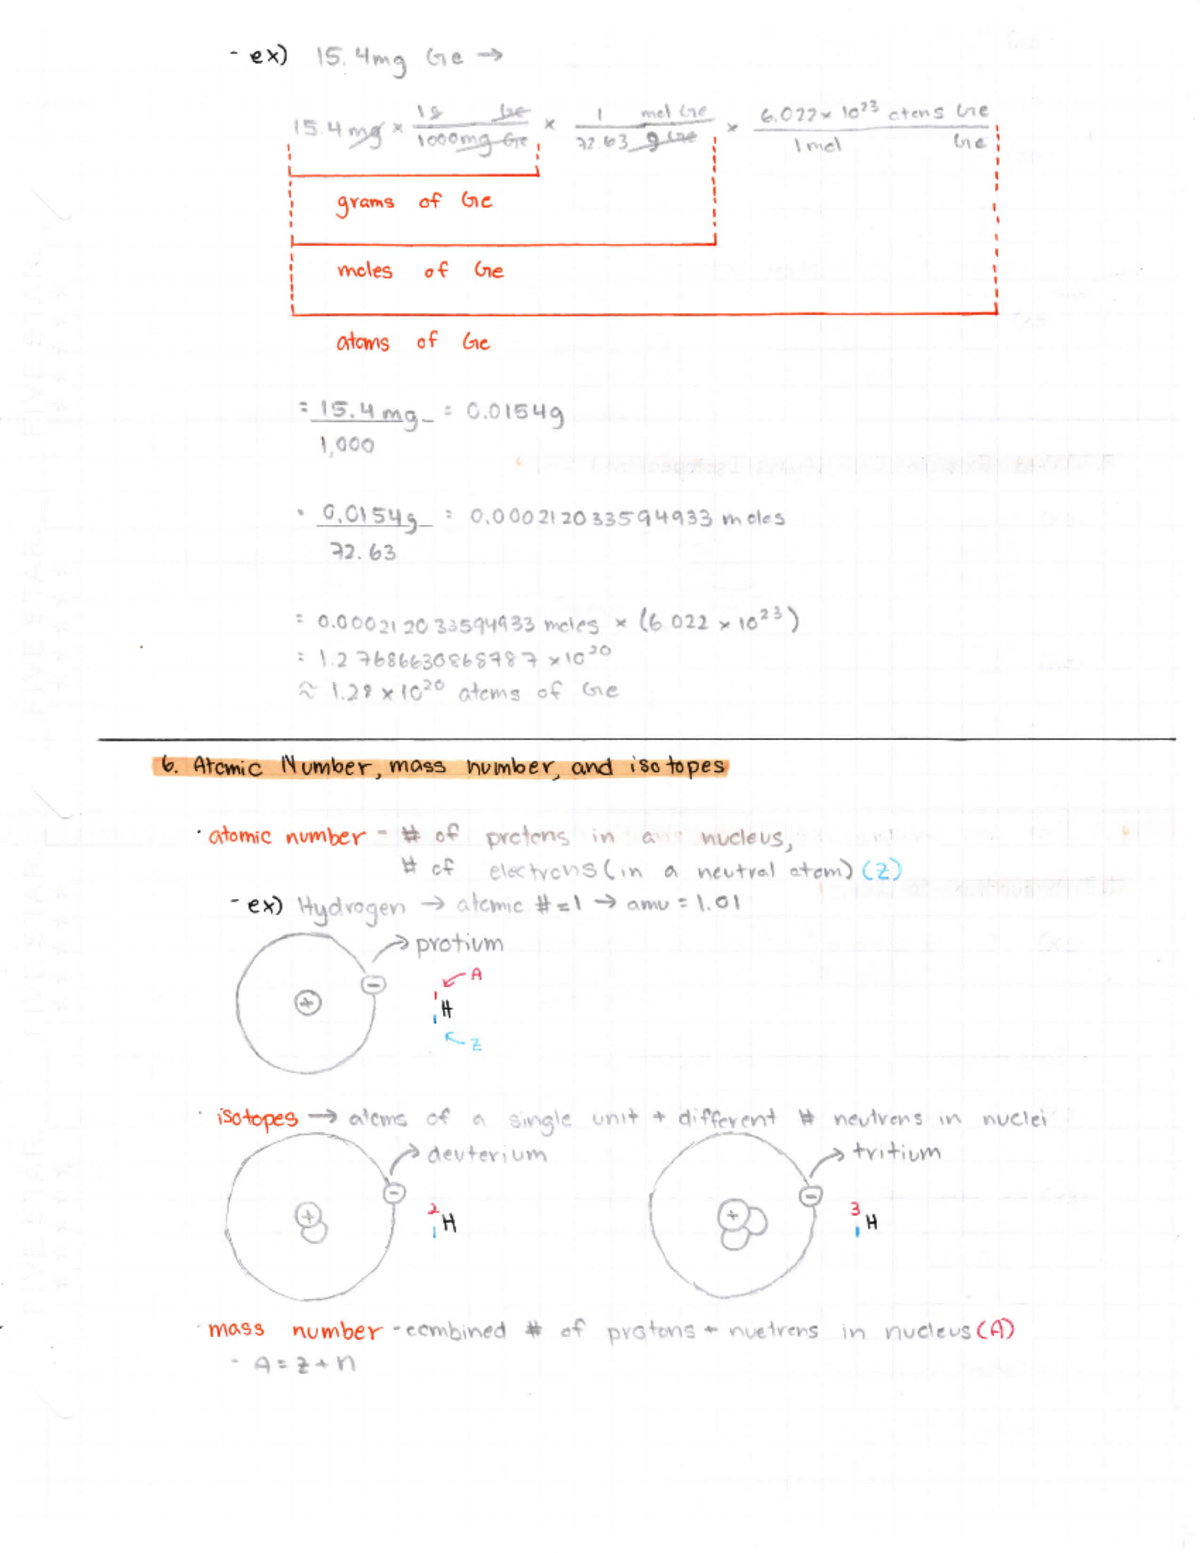 - ex) 15.4mg Ge →
15.4 mg × 1g Ge / 1000mg Ge × 1 mol Ge / 72.63 g Ge × 6.022 × 10²³ atoms Ge / 1 mol Ge
grams of Ge
moles of Ge
atoms of Ge
= 15.4 mg / 1,000 = 0.0154g
· 0.0154g / 72.63 = 0.000212033594933 moles
= 0.000212033594933 moles × (6.022 × 10²³)
= 1.27686630868787 × 10²⁰
≈ 1.28 × 10²⁰ atoms of Ge
6. Atomic Number, mass number, and isotopes
· atomic number - # of protons in a nucleus,
# of electrons (in a neutral atom) (Z)
- ex) Hydrogen → atomic # = 1 → amu = 1.01
→ protium
+
-
A
1
1
H
Z
· isotopes → atoms of a single unit + different # neutrons in nuclei
→ deuterium
→ tritium
+
-
2
1
H
+
-
3
1
H
· mass number - combined # of protons + nuetrons in nucleus (A)
- A = Z + n